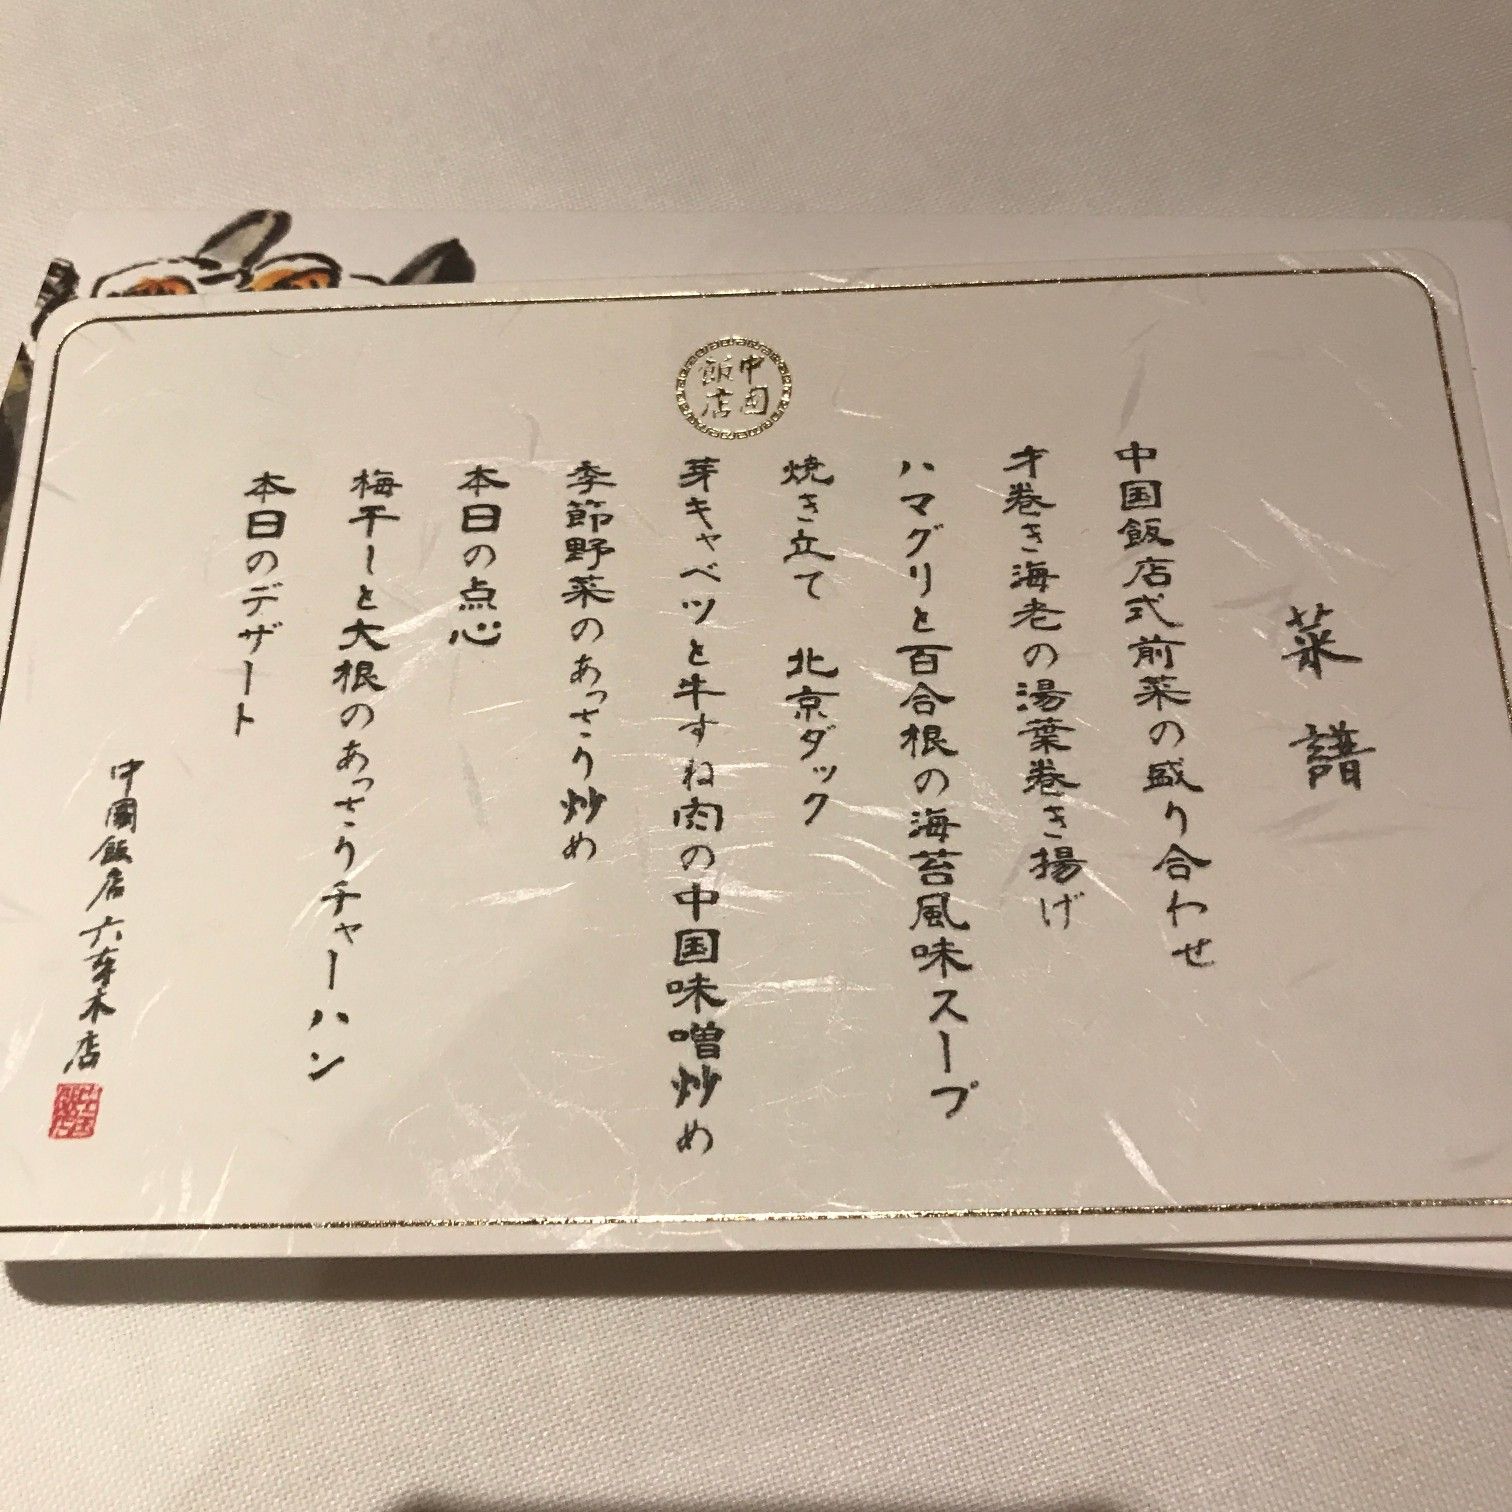 中国飯店
菜譜
中国飯店式前菜の盛り合わせ
才巻き海老の湯葉巻き揚げ
ハマグリと百合根の海苔風味スープ
焼き立て 北京ダック
芽キャベツと牛すね肉の中国味噌炒め
季節野菜のあっさり炒め
本日の点心
梅干しと大根のあっさりチャーハン
本日のデザート
中國飯店六本木店